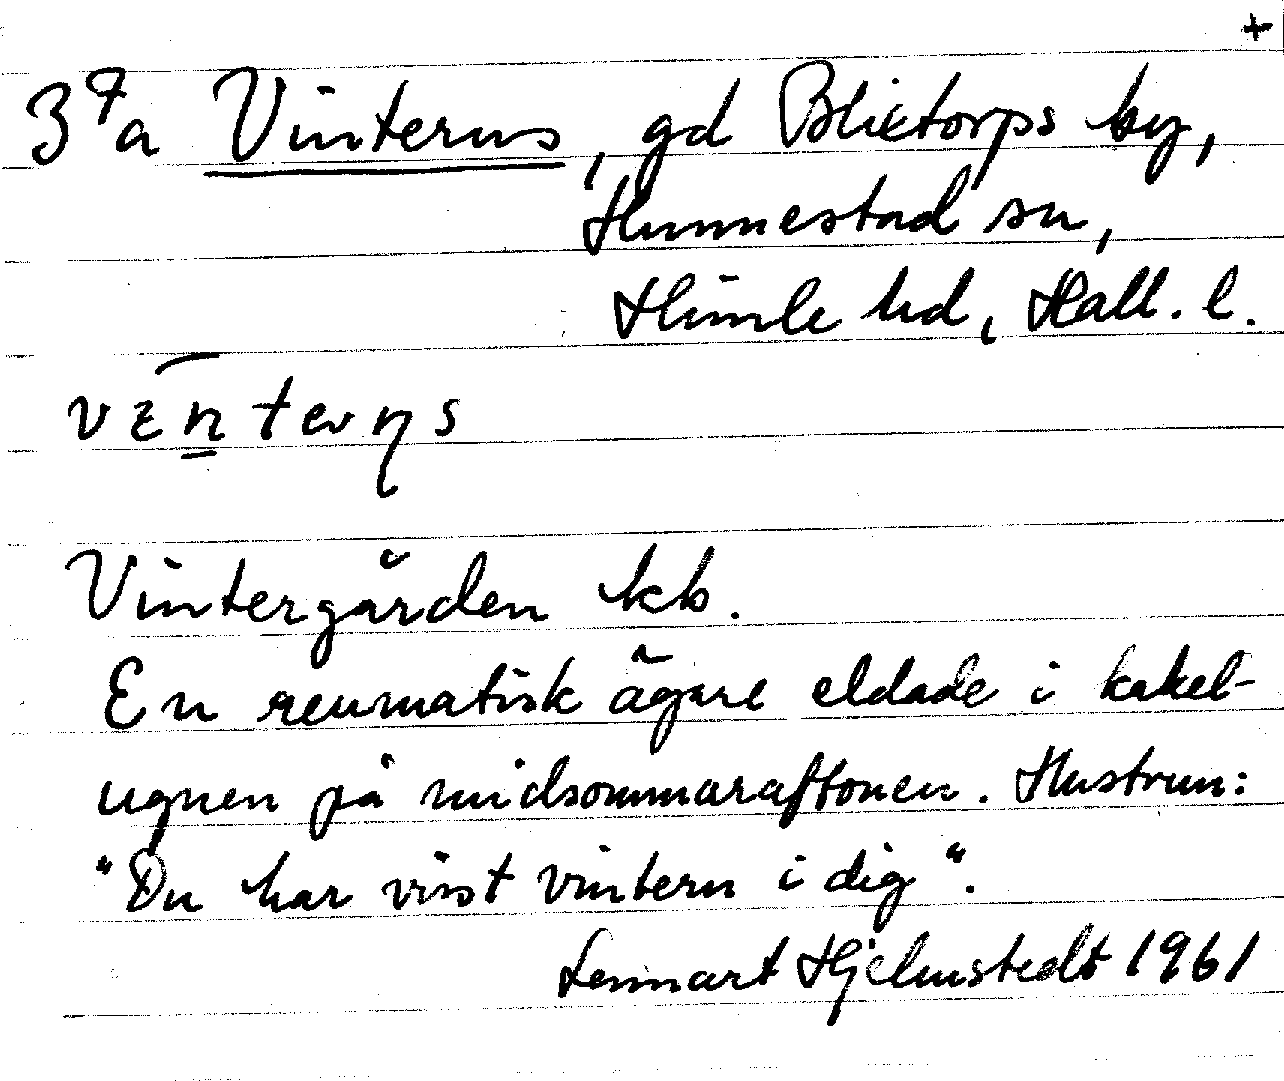 +
3⁷a Vinterns, gd Blixtorps by,
Hunnestad sn,
Himle hd, Hall. l.
Vintergården kb.
En reumatisk ägare eldade i kakel-
ugnen på midsommaraftonen. Hustrun:
"Du har visst vintern i dig".
Lennart Hjelmstedt 1961